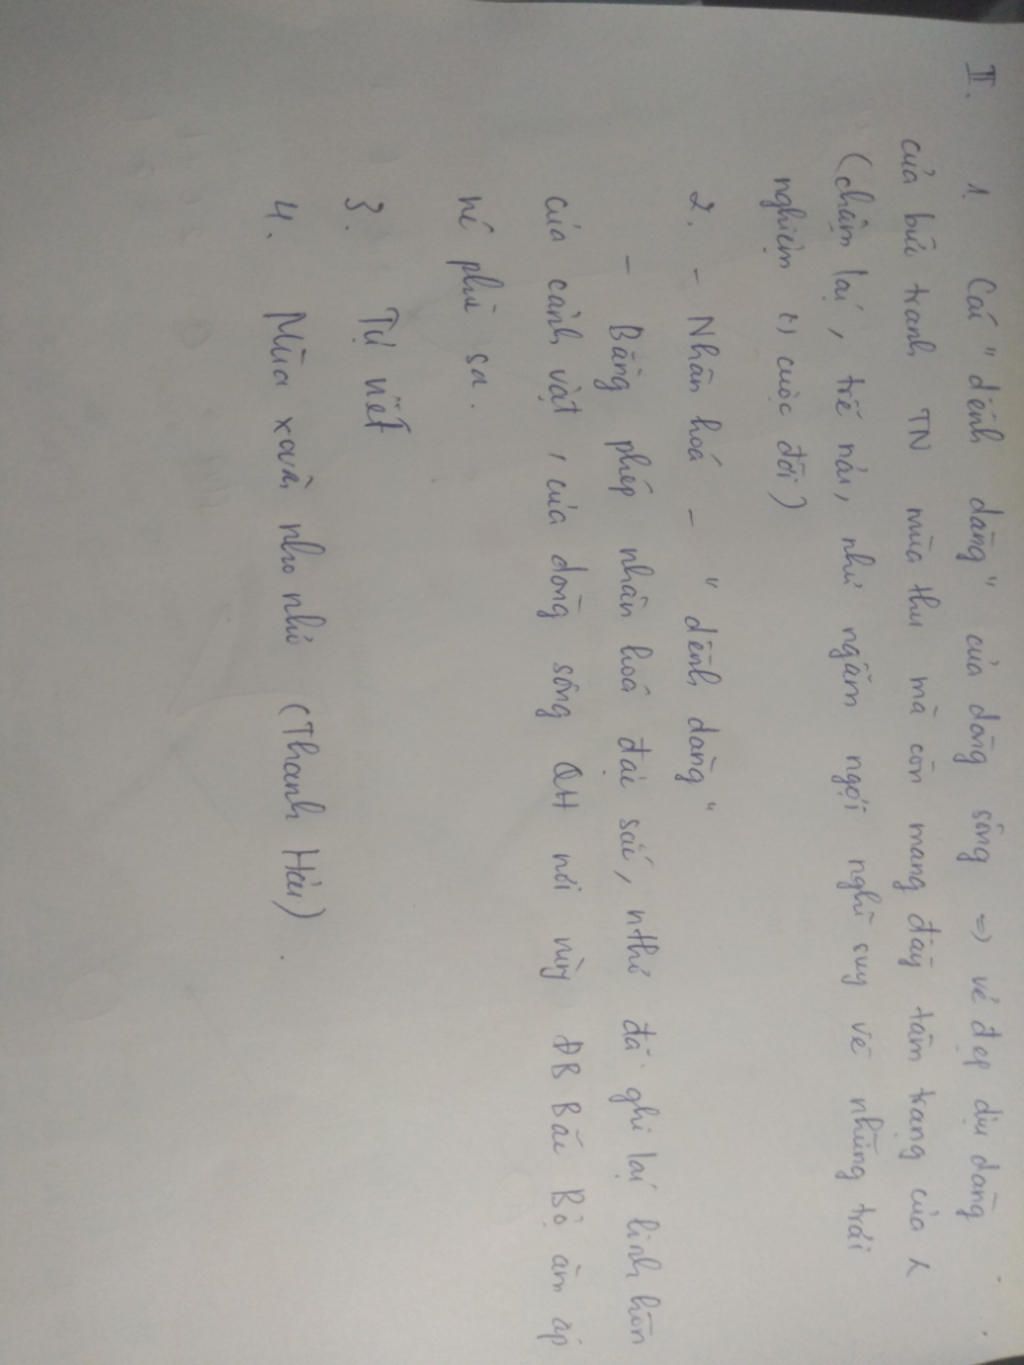 II. 1. Cái "dềnh dàng" của dòng sông => vẻ đẹp dịu dàng
của bức tranh TN mùa thu mà còn mang đầy tâm trạng của
(chậm lại, trễ nải, như ngẫm ngợi nghĩ suy về những trải
nghiệm cuộc đời)
2. - Nhân hoá - "dềnh dàng"
- Bằng phép nhân hoá đặc sắc, nthơ đã ghi lại linh hồn
của cảnh vật, của dòng sông QH nơi vùng ĐB Bắc Bộ ấm áp
phù sa.
3. Tự viết
4. Mùa xuân nho nhỏ (Thanh Hải).